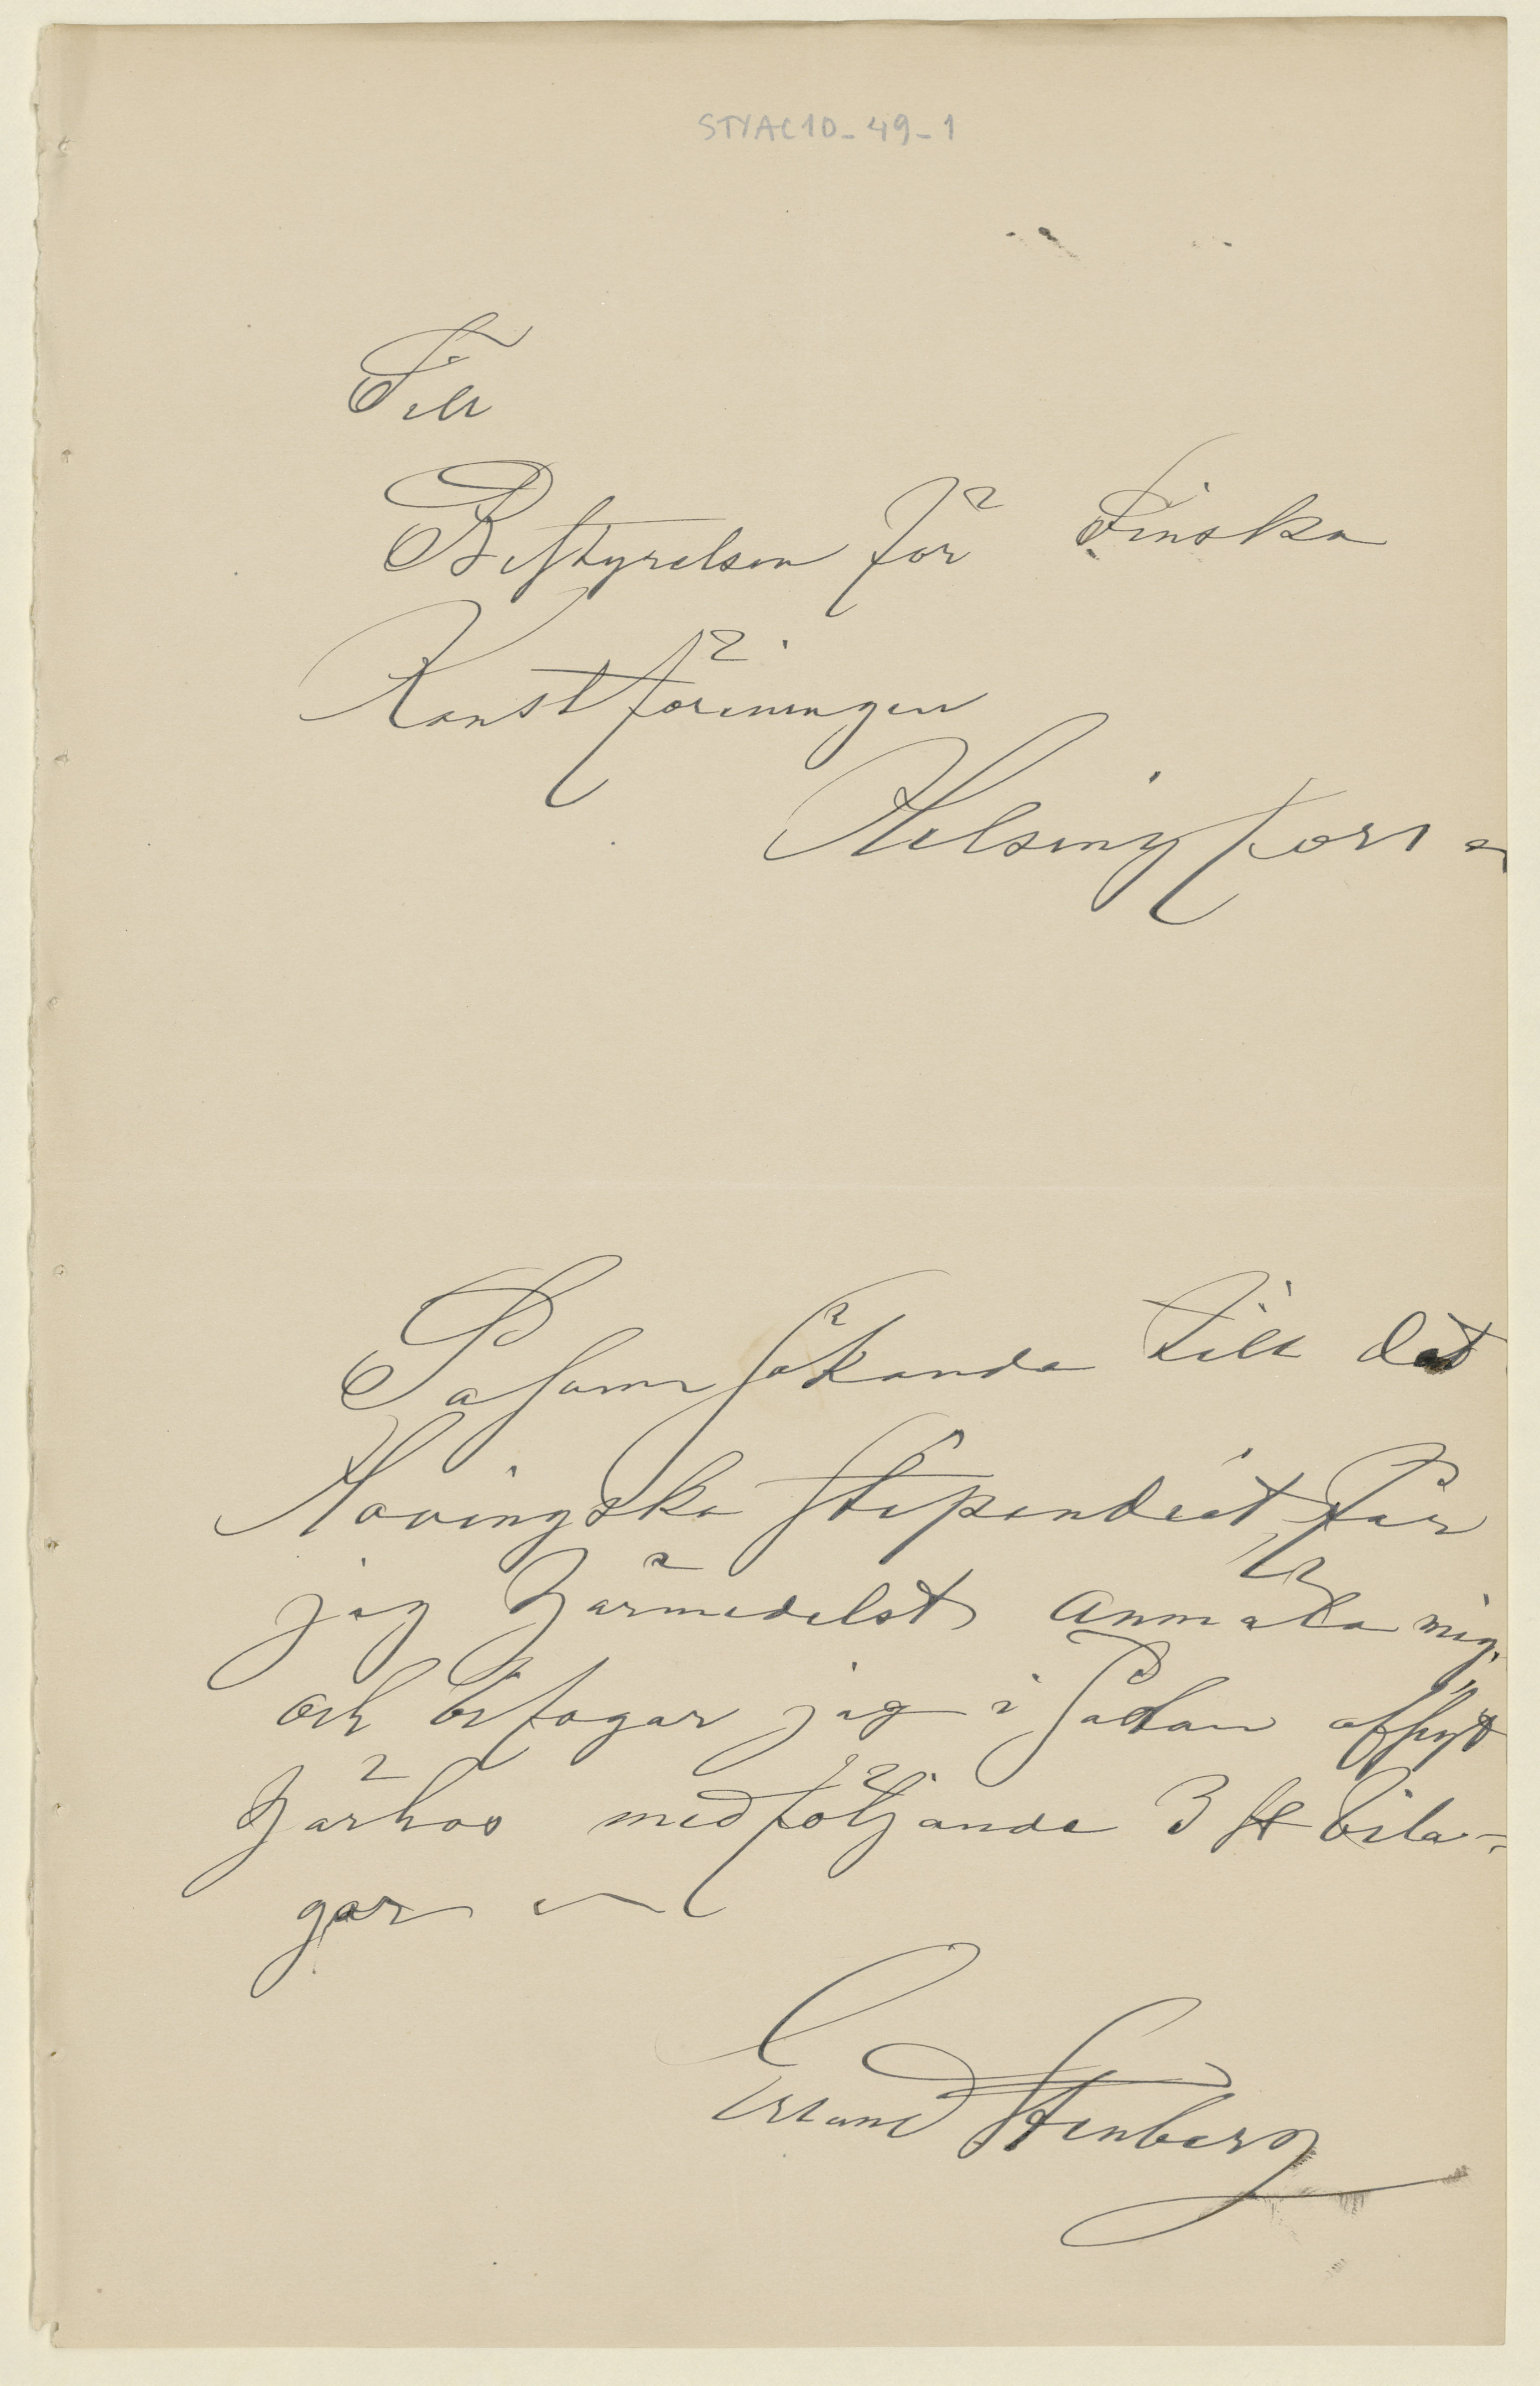 STYAC10-49-1
Till
Bestyrelsen för Finska
Konstföreningen
Helsingfors
Såsom sökande till det
Hovingska stipendiet får
jag härmedelst anmäla mig.
och bifogar jag i sådan afsigt
härhos medföljande 3 st bila-
gor
Erland Stenberg